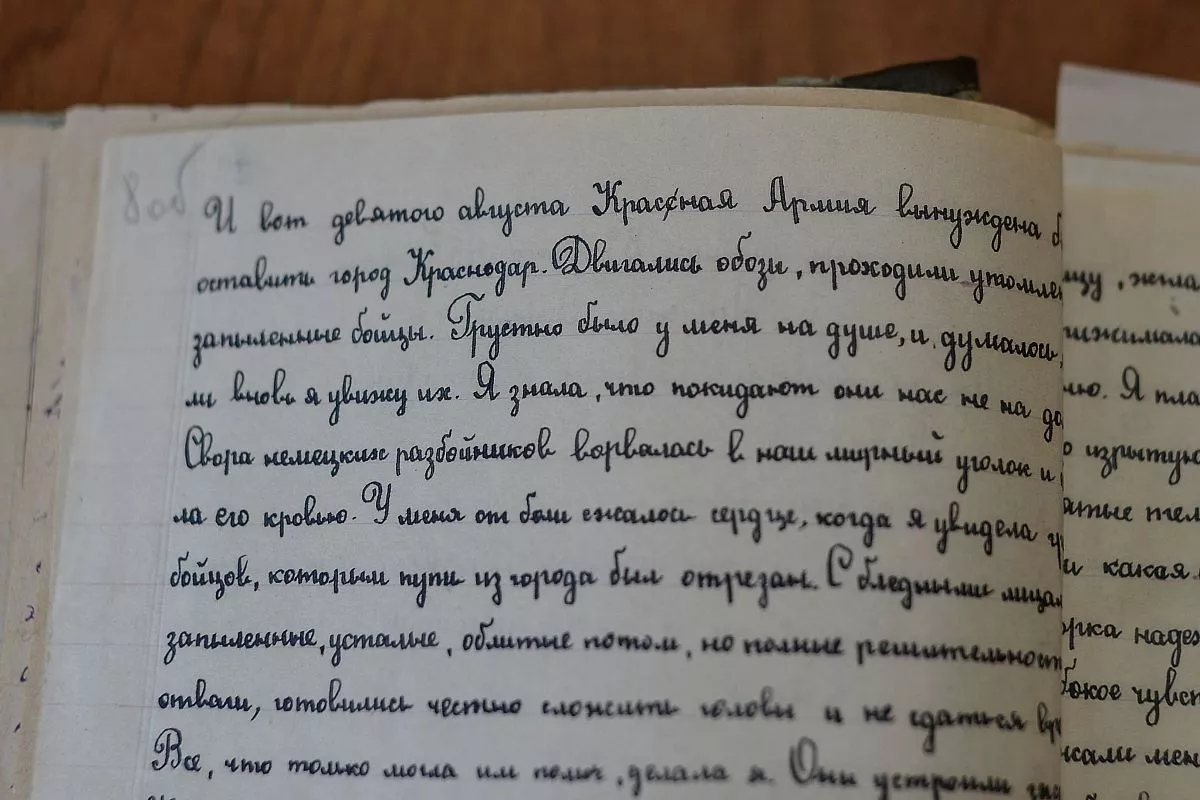 8 об
И вот девятого августа Красная Армия вынуждена б
оставить город Краснодар. Двигались обозы, проходили утомле
запыленные бойцы. Грустно было у меня на душе, и думалось,
ли вновь я увижу их. Я знала, что покидают они нас не на до
Свора немецких разбойников ворвалась в наш мирный уголок и
ла его кровью. У меня от боли сжалось сердце, когда я увидела
бойцов, которым пути из города был отрезан. С бледными лица
запыленные, усталые, облитые потом, но полные решительност
отваги, готовились честно сложить головы и не сдаться вр
Все, что только могла им помоч, делала я. Они устроили
щу, жгла
ижимала
лю. Я пла
о изрытую
атые тел
и какая
рка надеж
бокое чувст
жали мен